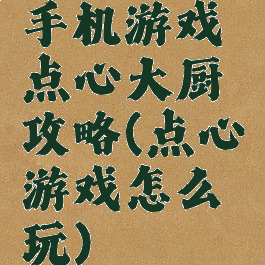 手机游戏
点心大厨
攻略(点心
游戏怎么
玩)